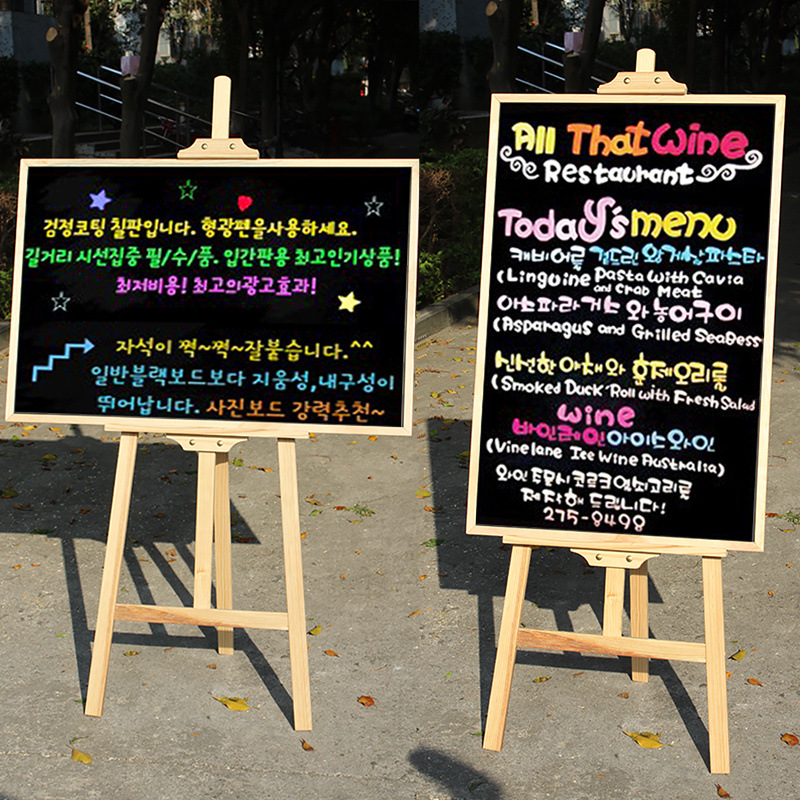 검정코팅 칠판입니다. 형광펜을사용하세요.
길거리 시선집중 필/수/품. 입간판용 최고인기상품!
최저비용! 최고의광고효과!
자석이 쩍~쩍~잘붙습니다.^^
일반블랙보드보다 지움성,내구성이
뛰어납니다. 사진보드 강력추천~
All That Wine
Restaurant
Today's menu
캐비어를 곁드린 왕게살파스타
(Linguine Pasta With Cavia
and Crab Meat
아스파라거스 와 농어구이
(Asparagus and Grilled SeaBess
신선한 야채와 훈제오리롤
(Smoked Duck Roll with Fresh Salad
Wine
바인레인 아이스와인
(Vinelane Ice Wine Australia)
와인 드신 코르크 열쇠고리를
제작해 드립니다!
275-8498